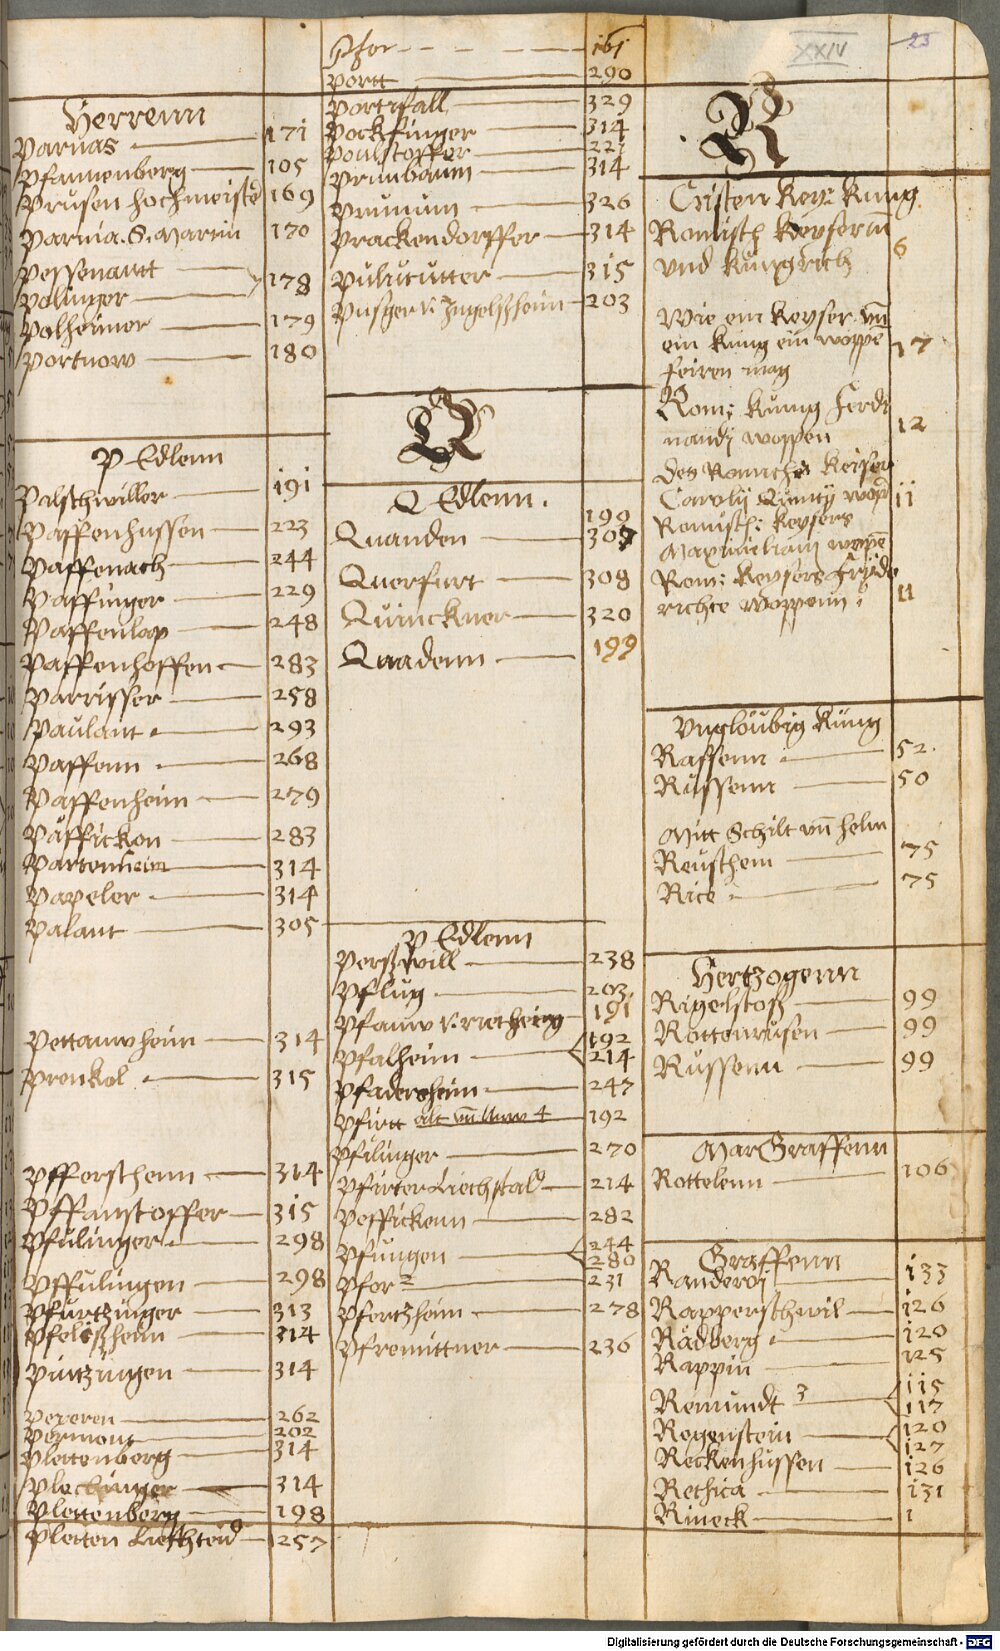 XXIV
23
Herrenn
Parnas 171
Pfannenberg 105
Prusen hochmeister 169
Parma. S. Martin 170
Pessenantt
Polinger 178
Polheimer 179
Portnow 180
P Edlenn
Palschwiller 191
Paffenhussen 223
Paffenach 244
Paffinger 229
Paffenlap 248
Paffenhoffen 283
Parrisser 258
Paulant 293
Paffenn 268
Paffenheim 279
Päffickon 283
Partenheim 314
Papeler 314
Palant 305
Pettanwheim 314
Prenkel 315
Pfferschenn 314
Pffanstoffer 315
Pfulinger 298
Pffulingen 298
Pfurtzinger 313
Pfelißheim 314
Pintzingen 314
Peperen 262
Permont 202
Plettenberg 314
314
Plettenberg 198
Pletten 257
Pfor 161
Portt 290
Portifall 329
Pockfinger 314
Poulstoffer 221
Prunbaum 314
Prunum 326
Prackendorffer 314
Pulucutter 315
Pusger v. Jngelßheim 203
Q
Q Edlenn.
199
Quanden 307
Querfurt 308
Quinckner 320
Quadenn 199
P Edlenn
Perßwill 238
Pflug 203
Pfauw v. rietheim 191
Pfalheim 192 214
Pfadersheim 247
Pfirtt alt vn̄ Nuw 4 192
Pfilinger 270
Pfirter Liechstal 214
Peffickenn 282
Pfungen 244 280
Pfor 2 231
Pfortzheim 278
Pfremittner 236
R
Cristen Key: Kung
Romisch Keyserin̄
vnd Kungrich 6
Wie ein Keyser vn̄
ein Kung ein woppē
feiren mag 17
Rom: Kunig Ferdi
nandj woppen 12
Des Romichen Keiser
Carolij Quintij wop 11
Romisch: Keysers
Maximiliani woppē
Rom: Keysers Fryde
richce woppenn: 11
Vnglöubig Küng
Rassenn 52
Russenn 50
Mitt Schilt vn̄ helm
Reuschem 75
Rice 75
Hertzogenn
Rigelstoß 99
Rottenrusen 99
Russenn 99
MarGraffenn
Rottelenn 106
Graffenn
Randeroj 133
Rapperschwil 126
Rädberg 120
Rappin 125
Remundt 3 115 117
Regenstein 120 127
Reckenhussen 126
Rethica 131
Rineck 1
Digitalisierung gefördert durch die Deutsche Forschungsgemeinschaft - DFG